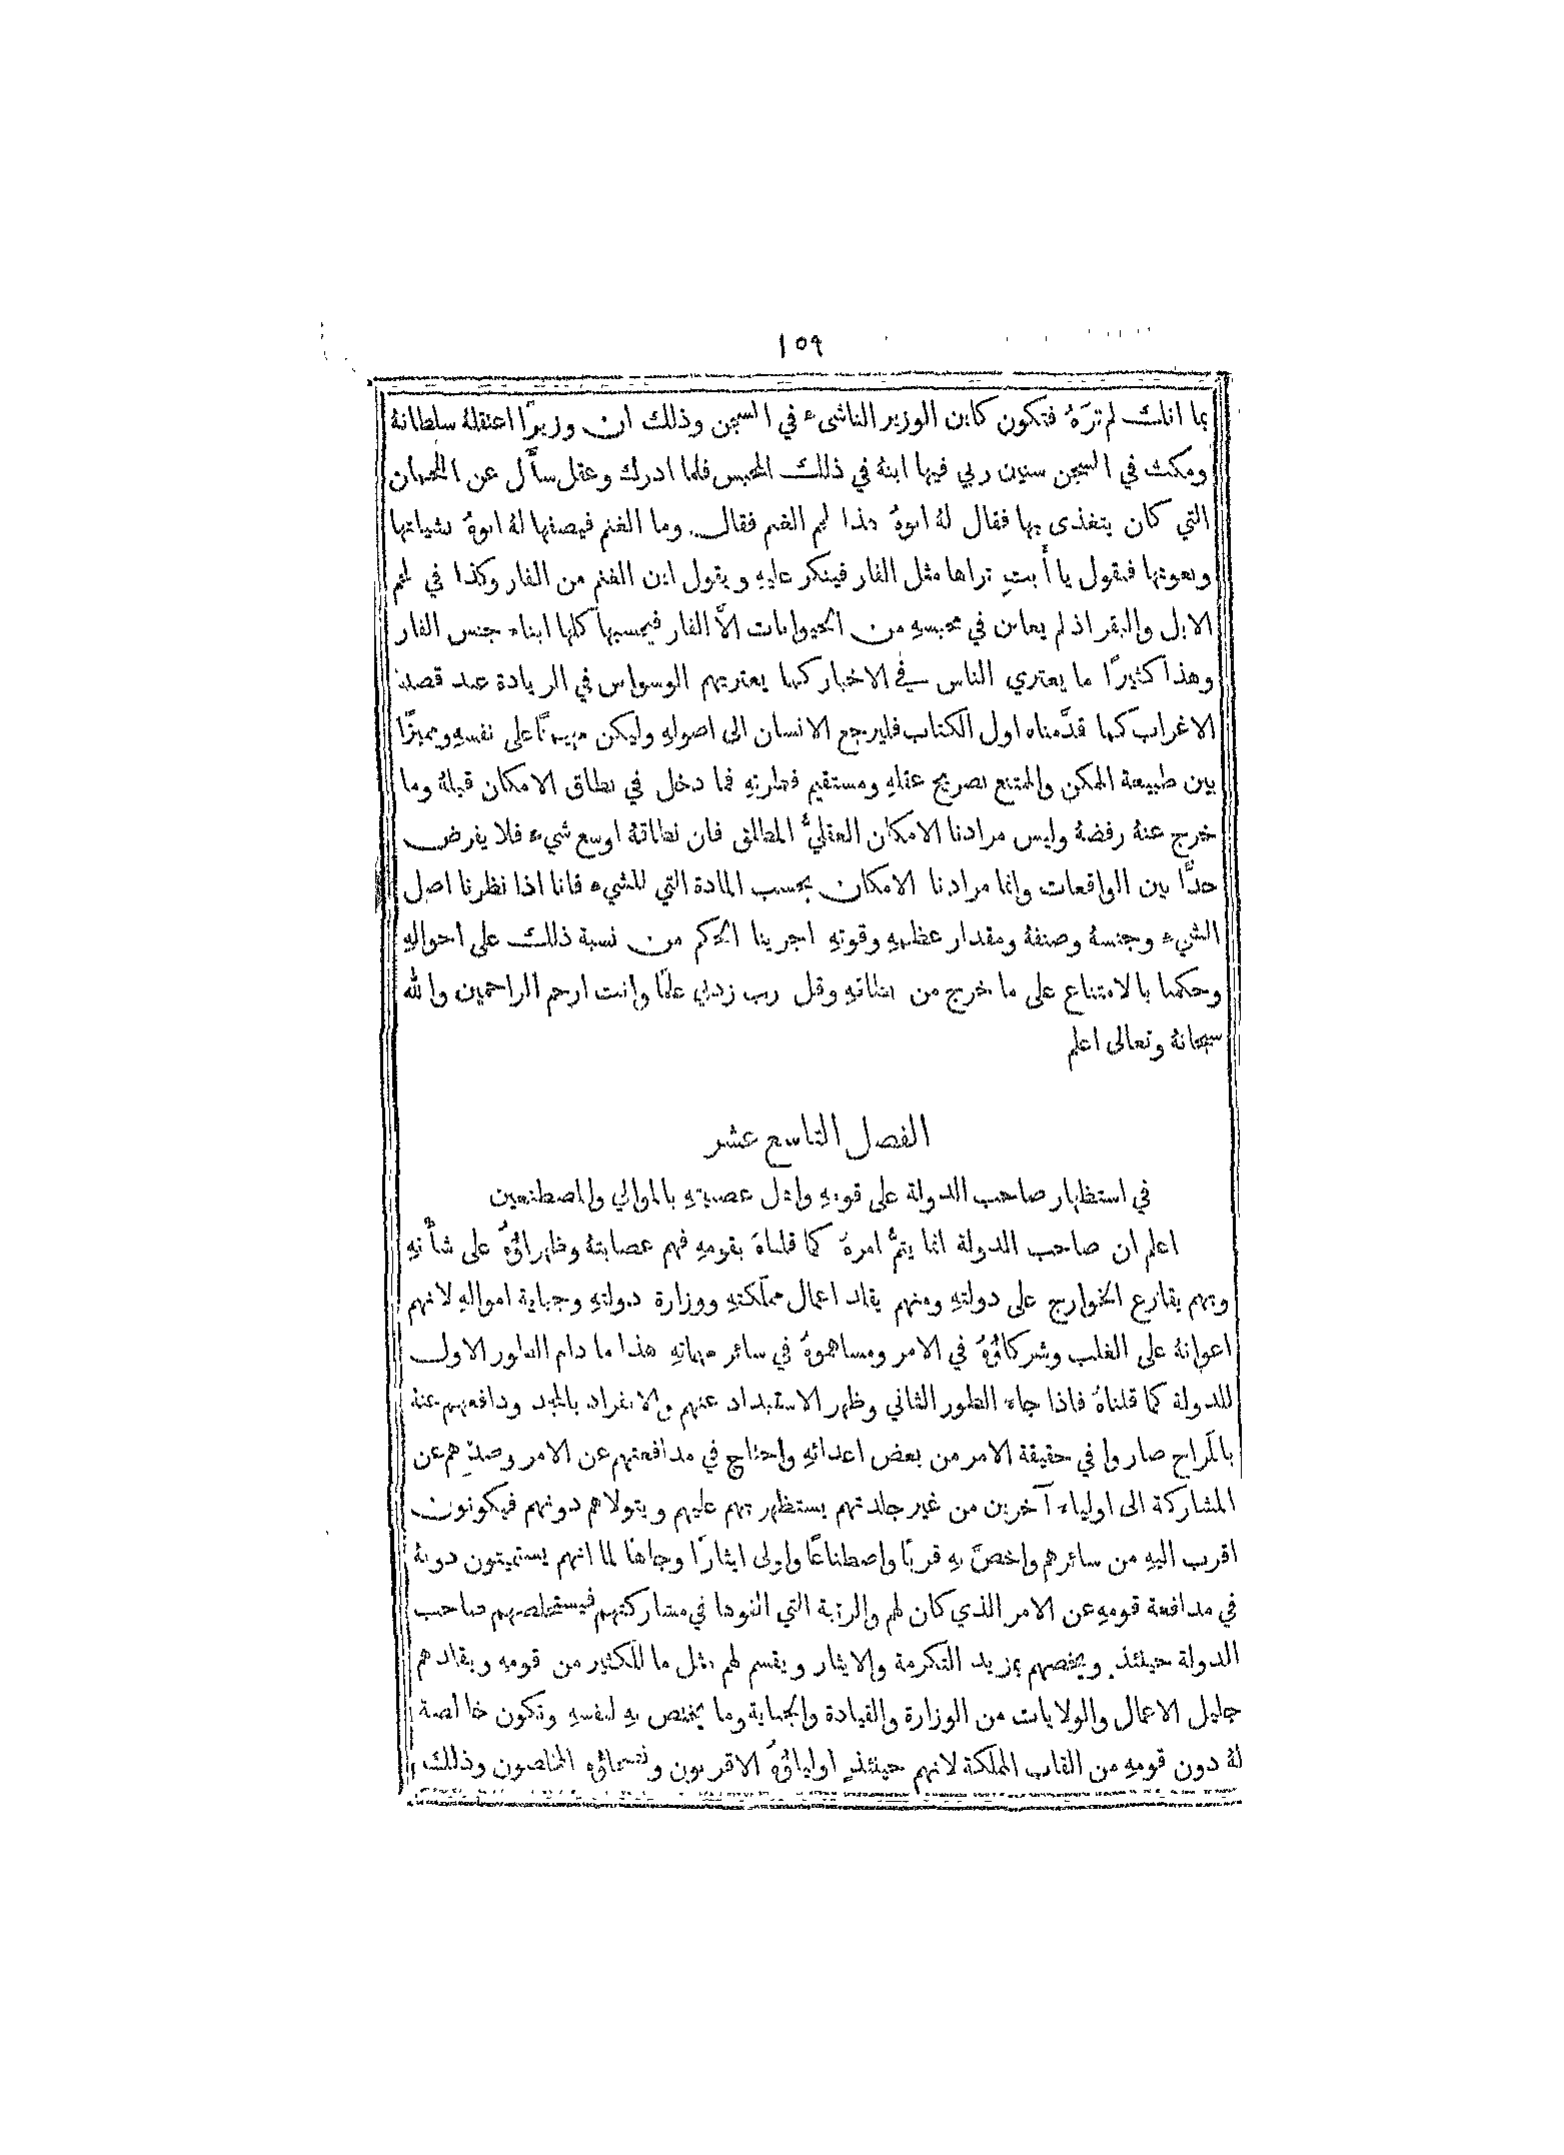 ١٥٩
بما انك لم ترَهُ فتكون كابن الوزير الناشىء في السجن وذلك ان وزيرًا اعتقلهُ سلطانهُ
ومكث في السجن سنين ربي فيها ابنهُ في ذلك المحبس فلما ادرك وعقل سأَل عن اللحمان
التي كان يتغذى بها فقال لهُ ابوهُ هذا لحم الغنم فقال وما الغنم فيصفها لهُ ابوهُ بشياتها
ونعوتها فيقول يا أَبتِ تراها مثل الفار فينكر عليهِ ويقول اين الغنم من الفار وكذا في لحم
الابل والبقر اذ لم يعاين في محبسهِ من الحيوانات الاَّ الفار فيحسبها كلها ابناء جنس الفار
وهذا كثيرًا ما يعتري الناس في الاخبار كما يعتريهم الوسواس في الزيادة عند قصد
الاغراب كما قدَّمناه اول الكتاب فليرجع الانسان الى اصولهِ وليكن مهيمنًا على نفسهِ ومميزًا
بين طبيعة الممكن والممتنع بصريح عقلهِ ومستقيم فطرتهِ فما دخل في نطاق الامكان قبلهُ وما
خرج عنهُ رفضهُ وليس مرادنا الامكان العقليَّ المطلق فان نطاقهُ اوسع شيء فلا يفرض
حدًّا بين الواقعات وانما مرادنا الامكان بحسب المادة التي للشيء فانا اذا نظرنا اصل
الشيء وجنسهُ وصنفهُ ومقدار عظمهِ وقوتهِ اجرينا الحكم من نسبة ذلك على احوالهِ
وحكمنا بالامتناع على ما خرج من نطاقهِ وقل رب زدني علمًا وانت ارحم الراحمين والله
سبحانهُ وتعالى اعلم
الفصل التاسع عشر
في استظهار صاحب الدولة على قومهِ واهل عصبيتهِ بالموالي والمصطنعين
اعلم ان صاحب الدولة انما يتمُّ امرهُ كما قلناهُ بقومهِ فهم عصابتهُ وظهراؤُهُ على شأْنهِ
وبهم يقارع الخوارج على دولتهِ ومنهم يقلد اعمال مملكتهِ ووزارة دولتهِ وجباية اموالهِ لانهم
اعوانهُ على الغلب وشركاؤُهُ في الامر ومساهموهُ في سائر مهماتهِ هذا ما دام الطور الاول
للدولة كما قلناهُ فاذا جاء الطور الثاني وظهر الاستبداد عنهم والانفراد بالمجد ودافعهم عنهُ
بالمراح صاروا في حقيقة الامر من بعض اعدائهِ واحتاج في مدافعتهم عن الامر وصدّهم عن
المشاركة الى اولياء آخرين من غير جلدتهم يستظهر بهم عليهم ويتولاهم دونهم فيكونون
اقرب اليهِ من سائرهم واخصَّ بهِ قربًا واصطناعًا واولى ايثارًا وجاهًا لما انهم يستميتون دونهُ
في مدافعة قومهِ عن الامر الذي كان لهم والرتبة التي الفوها في مشاركتهم فيستخلصهم صاحب
الدولة حينئذٍ ويخصهم بمزيد التكرمة والايثار ويقسم لهم مثل ما للكثير من قومهِ ويقلدهم
جليل الاعمال والولايات من الوزارة والقيادة والجباية وما يختص بهِ لنفسهِ وتكون خالصة
لهُ دون قومهِ من القاب المملكة لانهم حينئذٍ اولياؤُهُ الاقربون ونصحاؤُه المخلصون وذلك